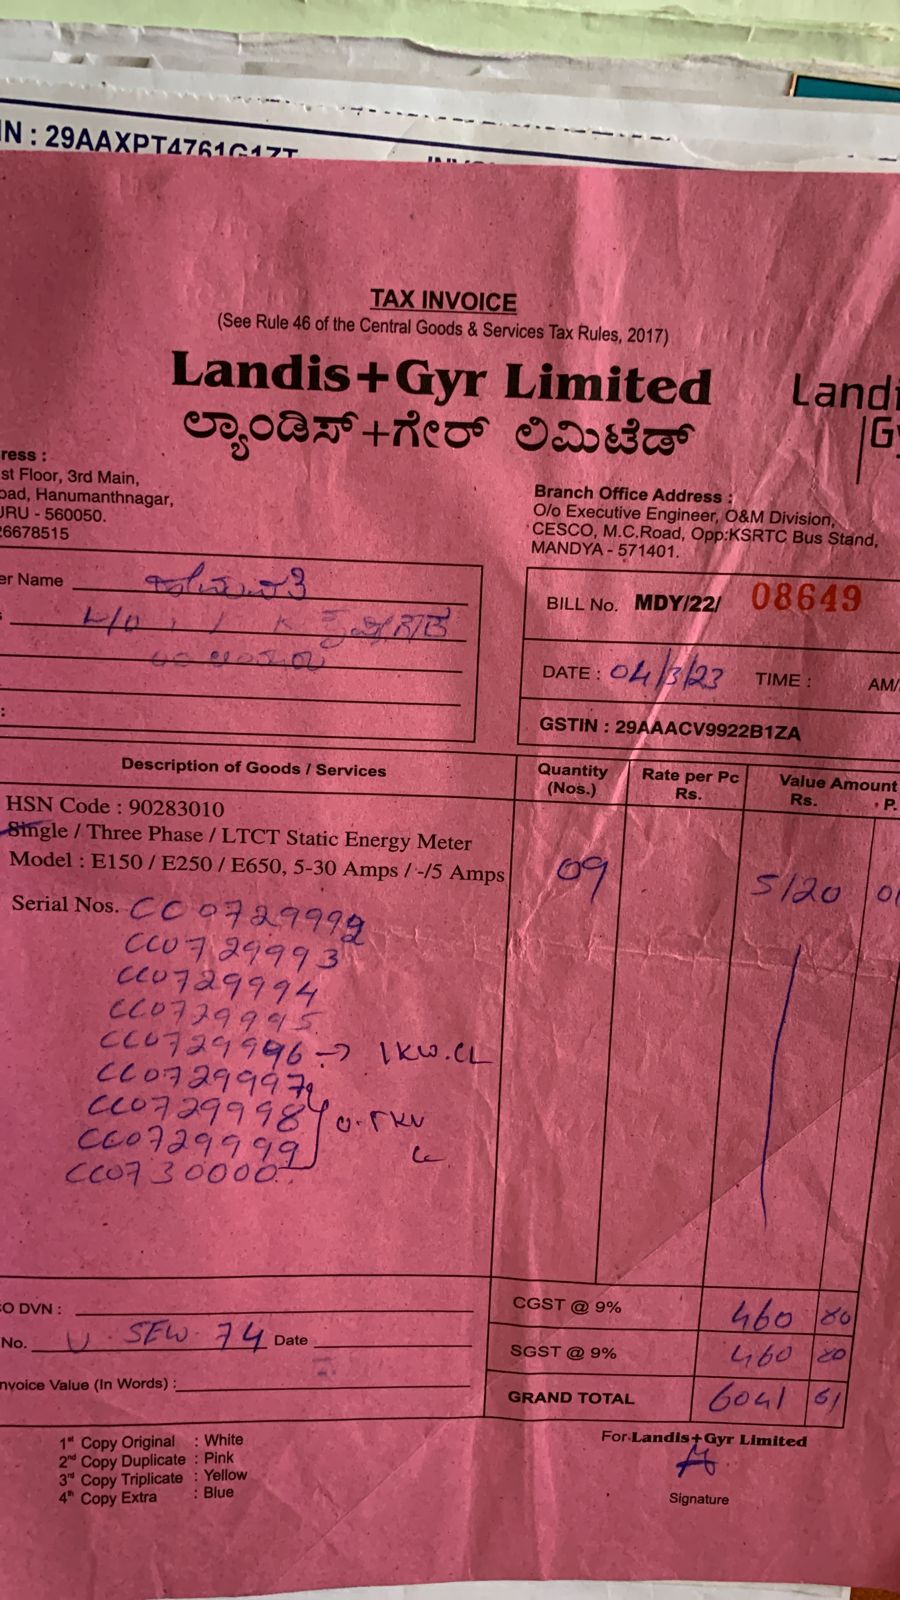 IN : 29AAXPT4761G1ZT
TAX INVOICE
(See Rule 46 of the Central Goods & Services Tax Rules, 2017)
Landis+Gyr Limited
Landi
Gy
ಲ್ಯಾಂಡಿಸ್+ಗೇರ್ ಲಿಮಿಟೆಡ್
ress :
st Floor, 3rd Main,
oad, Hanumanthnagar,
URU - 560050.
26678515
Branch Office Address :
O/o Executive Engineer, O&M Division,
CESCO, M.C.Road, Opp:KSRTC Bus Stand,
MANDYA - 571401.
er Name
BILL No. MDY/22/ 08649
DATE : 04/3/23 TIME : AM/
GSTIN : 29AAACV9922B1ZA
Description of Goods / Services Quantity (Nos.) Rate per Pc Rs. Value Amount Rs. P.
HSN Code : 90283010
Single / Three Phase / LTCT Static Energy Meter
Model : E150 / E250 / E650, 5-30 Amps / -/5 Amps 09 5120 01
Serial Nos. CC0729992
CC0729993
CC0729994
CC0729995
CC0729996 → 1KW.CL
CC0729997
CC0729998
CC0729999
CC0730000
O DVN :
No. 74 Date
nvoice Value (In Words) :
CGST @ 9% 460 80
SGST @ 9% 460 80
GRAND TOTAL 6041 61
1st Copy Original : White
2nd Copy Duplicate : Pink
3rd Copy Triplicate : Yellow
4th Copy Extra : Blue
For Landis+Gyr Limited
Signature